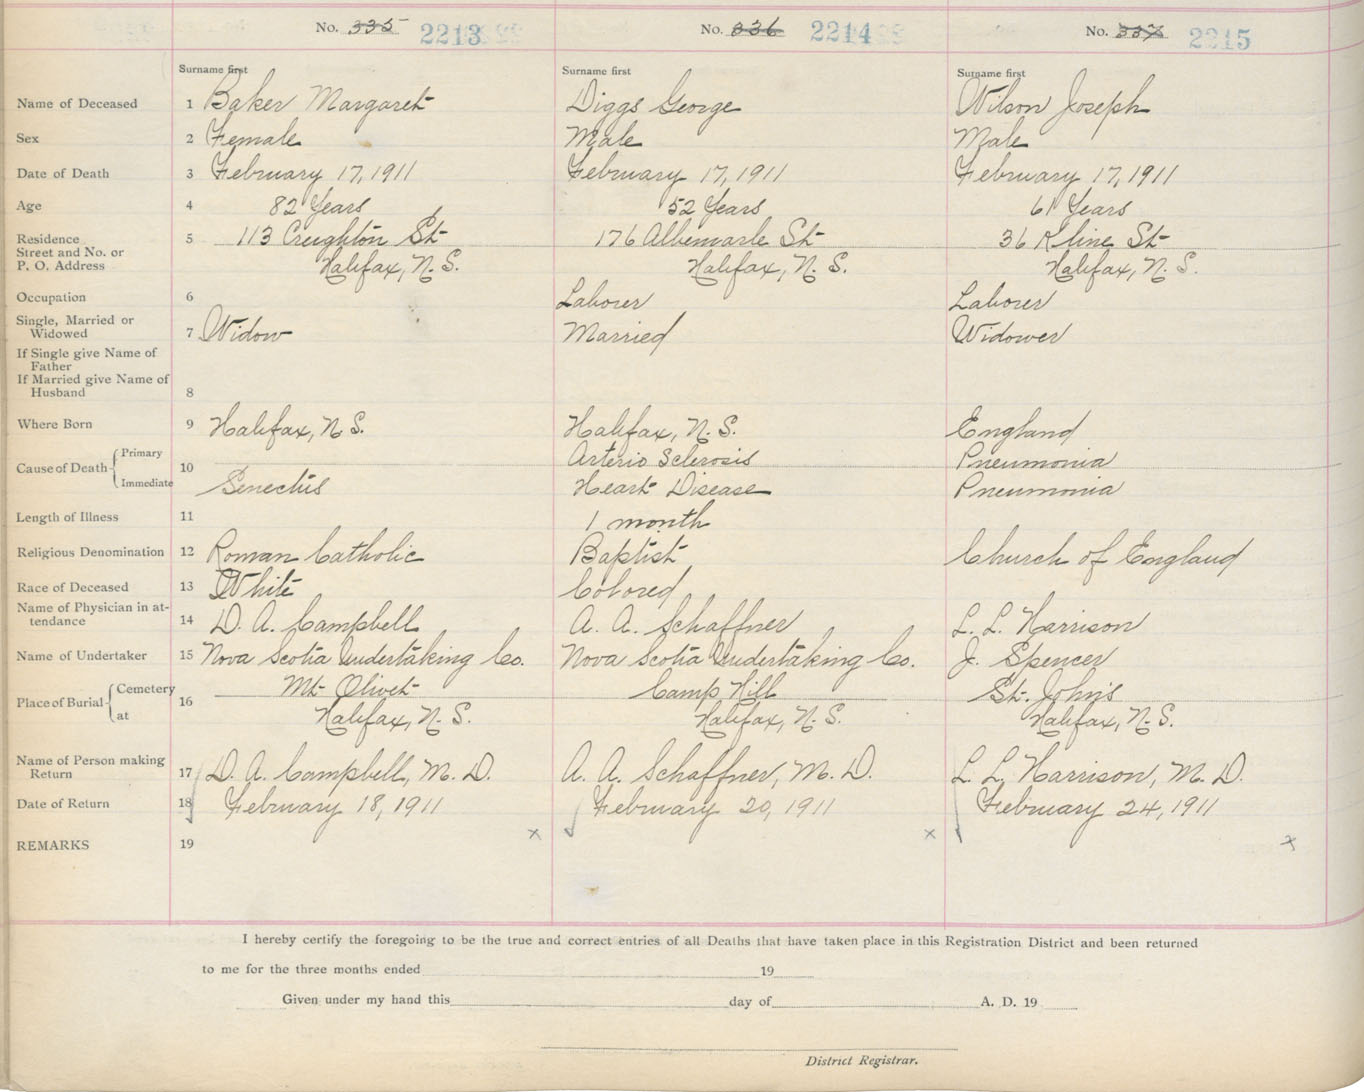 No. 335 2213
No. 336 2214
No. 337 2215
Surname first
Surname first
Surname first
Name of Deceased 1 Baker Margaret Diggs George Wilson Joseph
Sex 2 Female Male Male
Date of Death 3 February 17, 1911 February 17, 1911 February 17, 1911
Age 4 82 Years 52 Years 61 Years
Residence 5 113 Creighton St 176 Albemarle St 36 Kline St
Street and No. or
P. O. Address Halifax, N. S. Halifax, N. S. Halifax, N. S.
Occupation 6 Laborer Laborer
Single, Married or
Widowed 7 Widow Married Widower
If Single give Name of
Father
If Married give Name of
Husband 8
Where Born 9 Halifax, N S. Halifax, N. S. England
Primary Arterio Sclerosis Pneumonia
Cause of Death 10
Immediate Senectus Heart Disease Pneumonia
Length of Illness 11 1 month
Religious Denomination 12 Roman Catholic Baptist Church of England
Race of Deceased 13 White Colored
Name of Physician in at-
tendance 14 D. A. Campbell A. A. Schaffner L. L. Harrison
Name of Undertaker 15 Nova Scotia Undertaking Co. Nova Scotia Undertaking Co. J. Spencer
Cemetery Mt Olivet Camp Hill St. John's
Place of Burial 16
at Halifax, N. S. Halifax, N. S. Halifax, N. S.
Name of Person making
Return 17 D. A. Campbell, M. D. A. A. Schaffner, M. D. L. L. Harrison, M. D.
Date of Return 18 February 18, 1911 February 20, 1911 February 24, 1911
x x x
REMARKS 19
I hereby certify the foregoing to be the true and correct entries of all Deaths that have taken place in this Registration District and been returned
to me for the three months ended 19
Given under my hand this day of A. D. 19
District Registrar.